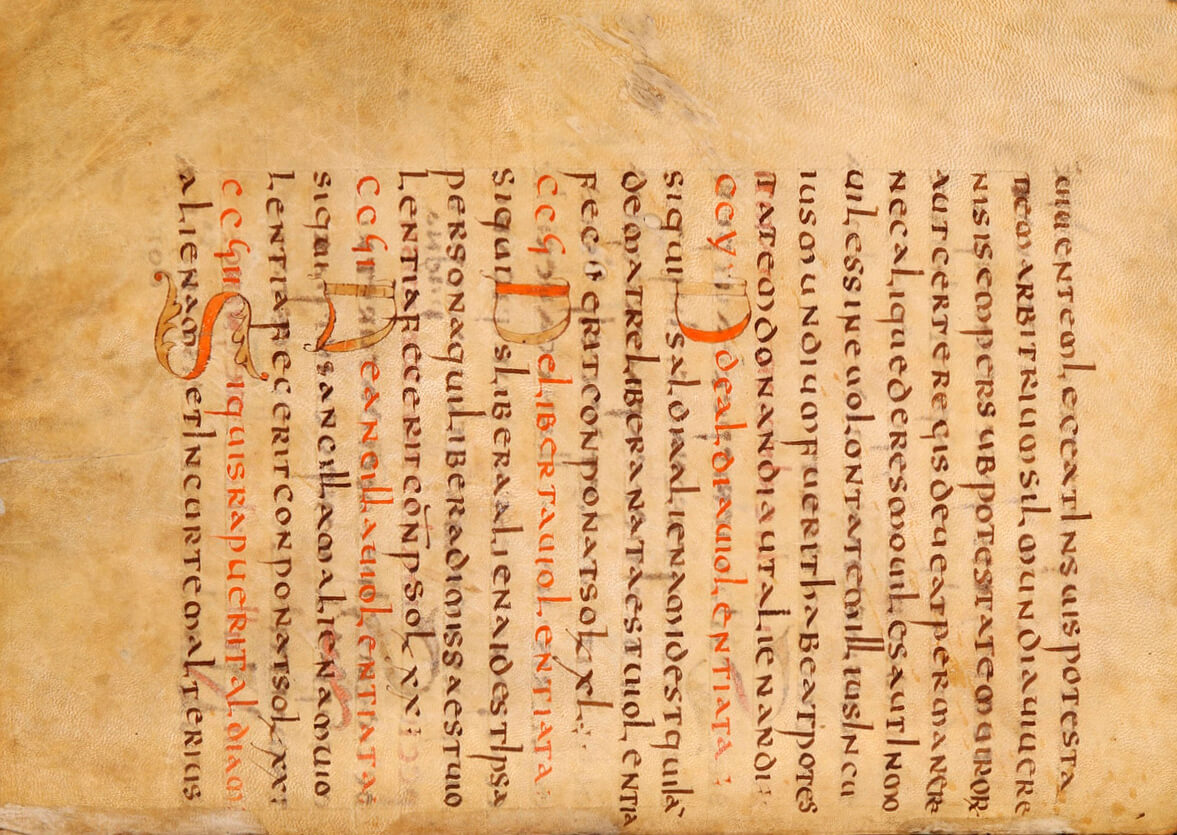 uiuentem leceat in suis potesta
tem arbitrium sil mundia uiuere
nisi semper sub potestatem uiror
aut certe regis deueat permaner
nec alique de res mouiles aut inmo
uiles sine uolontatem illius in cu
ius mundium fuerit habeat potes
tatem donandi aut alienandi:
CCV De aldia uiolentiata:
si quis aldia alienam id est qui ia
de matre libera nata est uiolentia
fecerit conponat sol xl:
CCVI De liberta uiolentiata
si quis libera aliena id est ipsa
persona qui libera dimissa est uio
lentia fecerit conp sol xx:
CCVII De ancilla uiolentiata
si quis ancillam alienam uio
lentia fecerit conponat sol xx:
CCVIII Si quis rapuerit aldiam
alienam et in curtem alterius